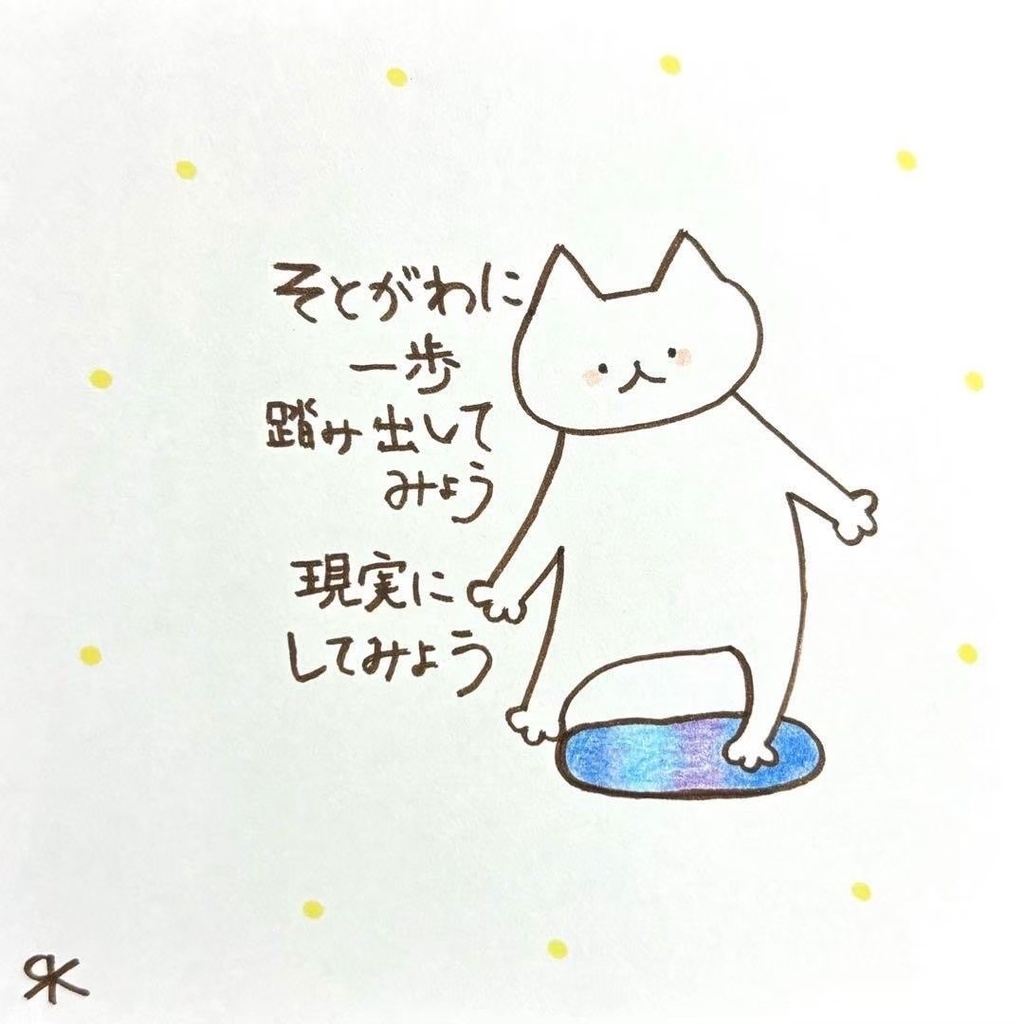 そとがわに
一歩
踏み出して
みょう
現実に
してみょう